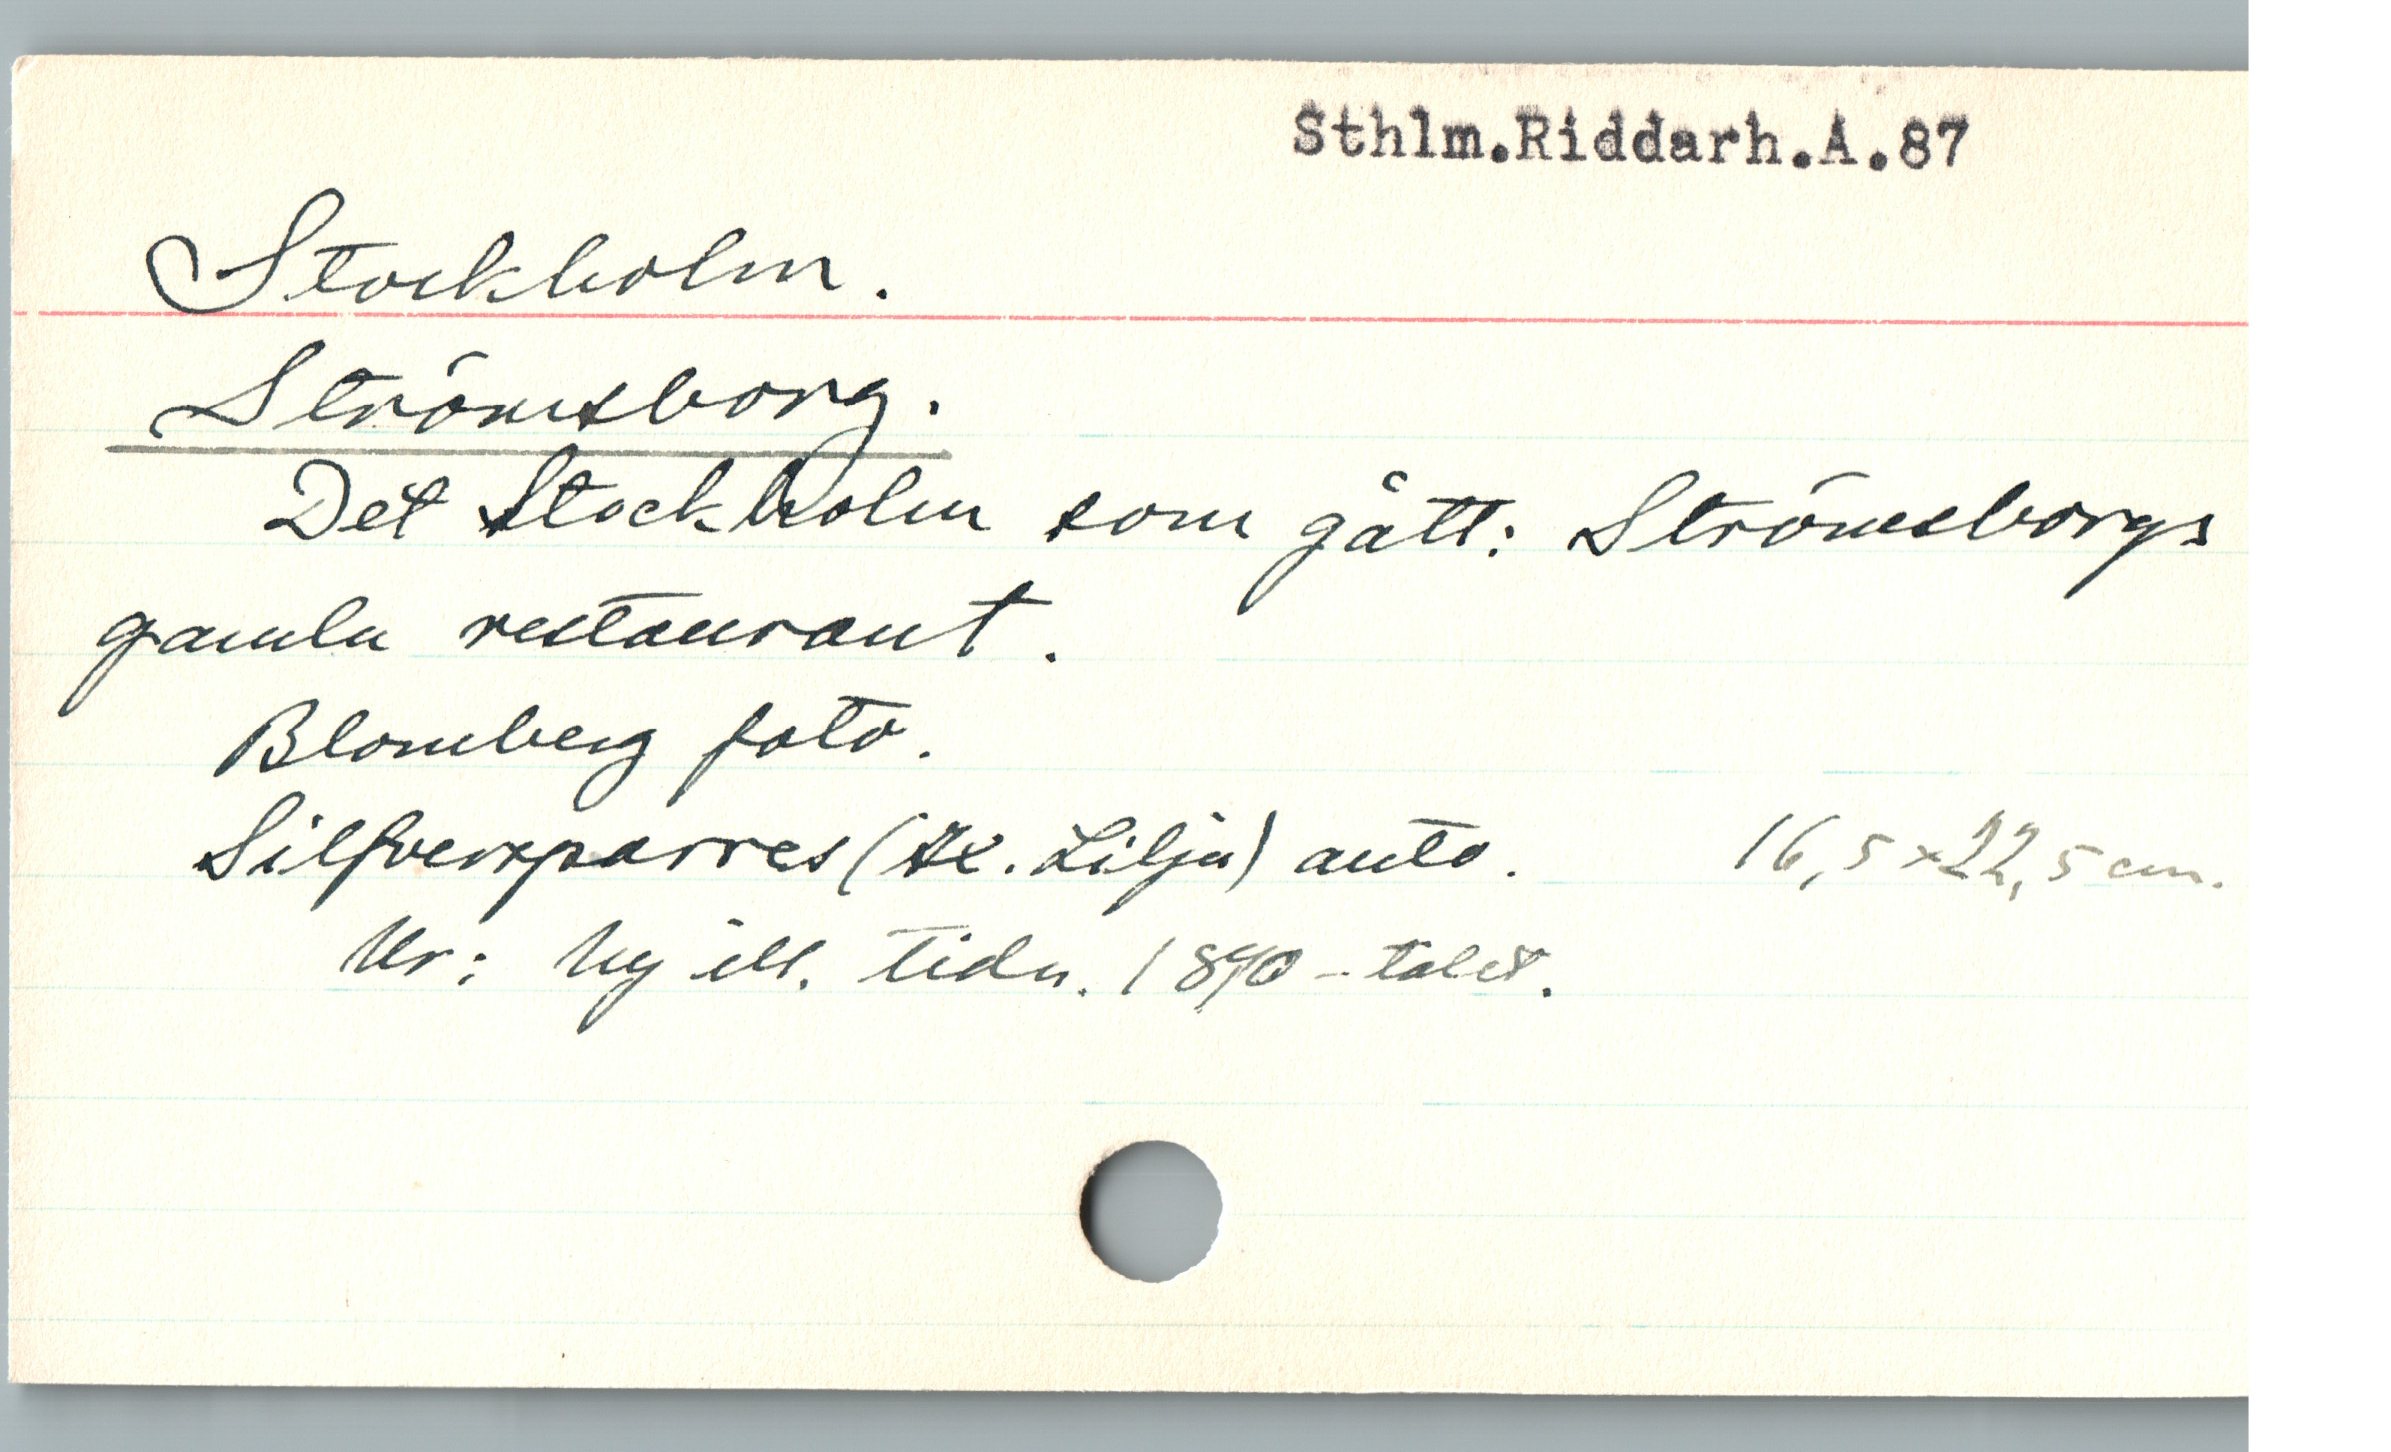 Sthlm.Riddarh.A.87
Stockholm.
Strömsborg.
Det Stockholm som gått: Strömsborgs
gamla restaurant.
Blomberg foto.
Silfversparres (Lilja) auto. 16,5 x 22,5 cm.
Ur: Ny ill. tidn. 1890-talet.